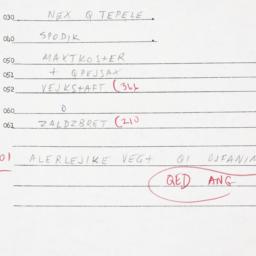 030 NEX Q TEPELE
040 SPODIK
050 MAXTKOSTER
051 + QPEJSAX
052 VEJKS+AFT (344
060 O
061 ZALDZBRET (210
01 ALERLEJIKE VEG+ QI OJFANIN
QED ANG